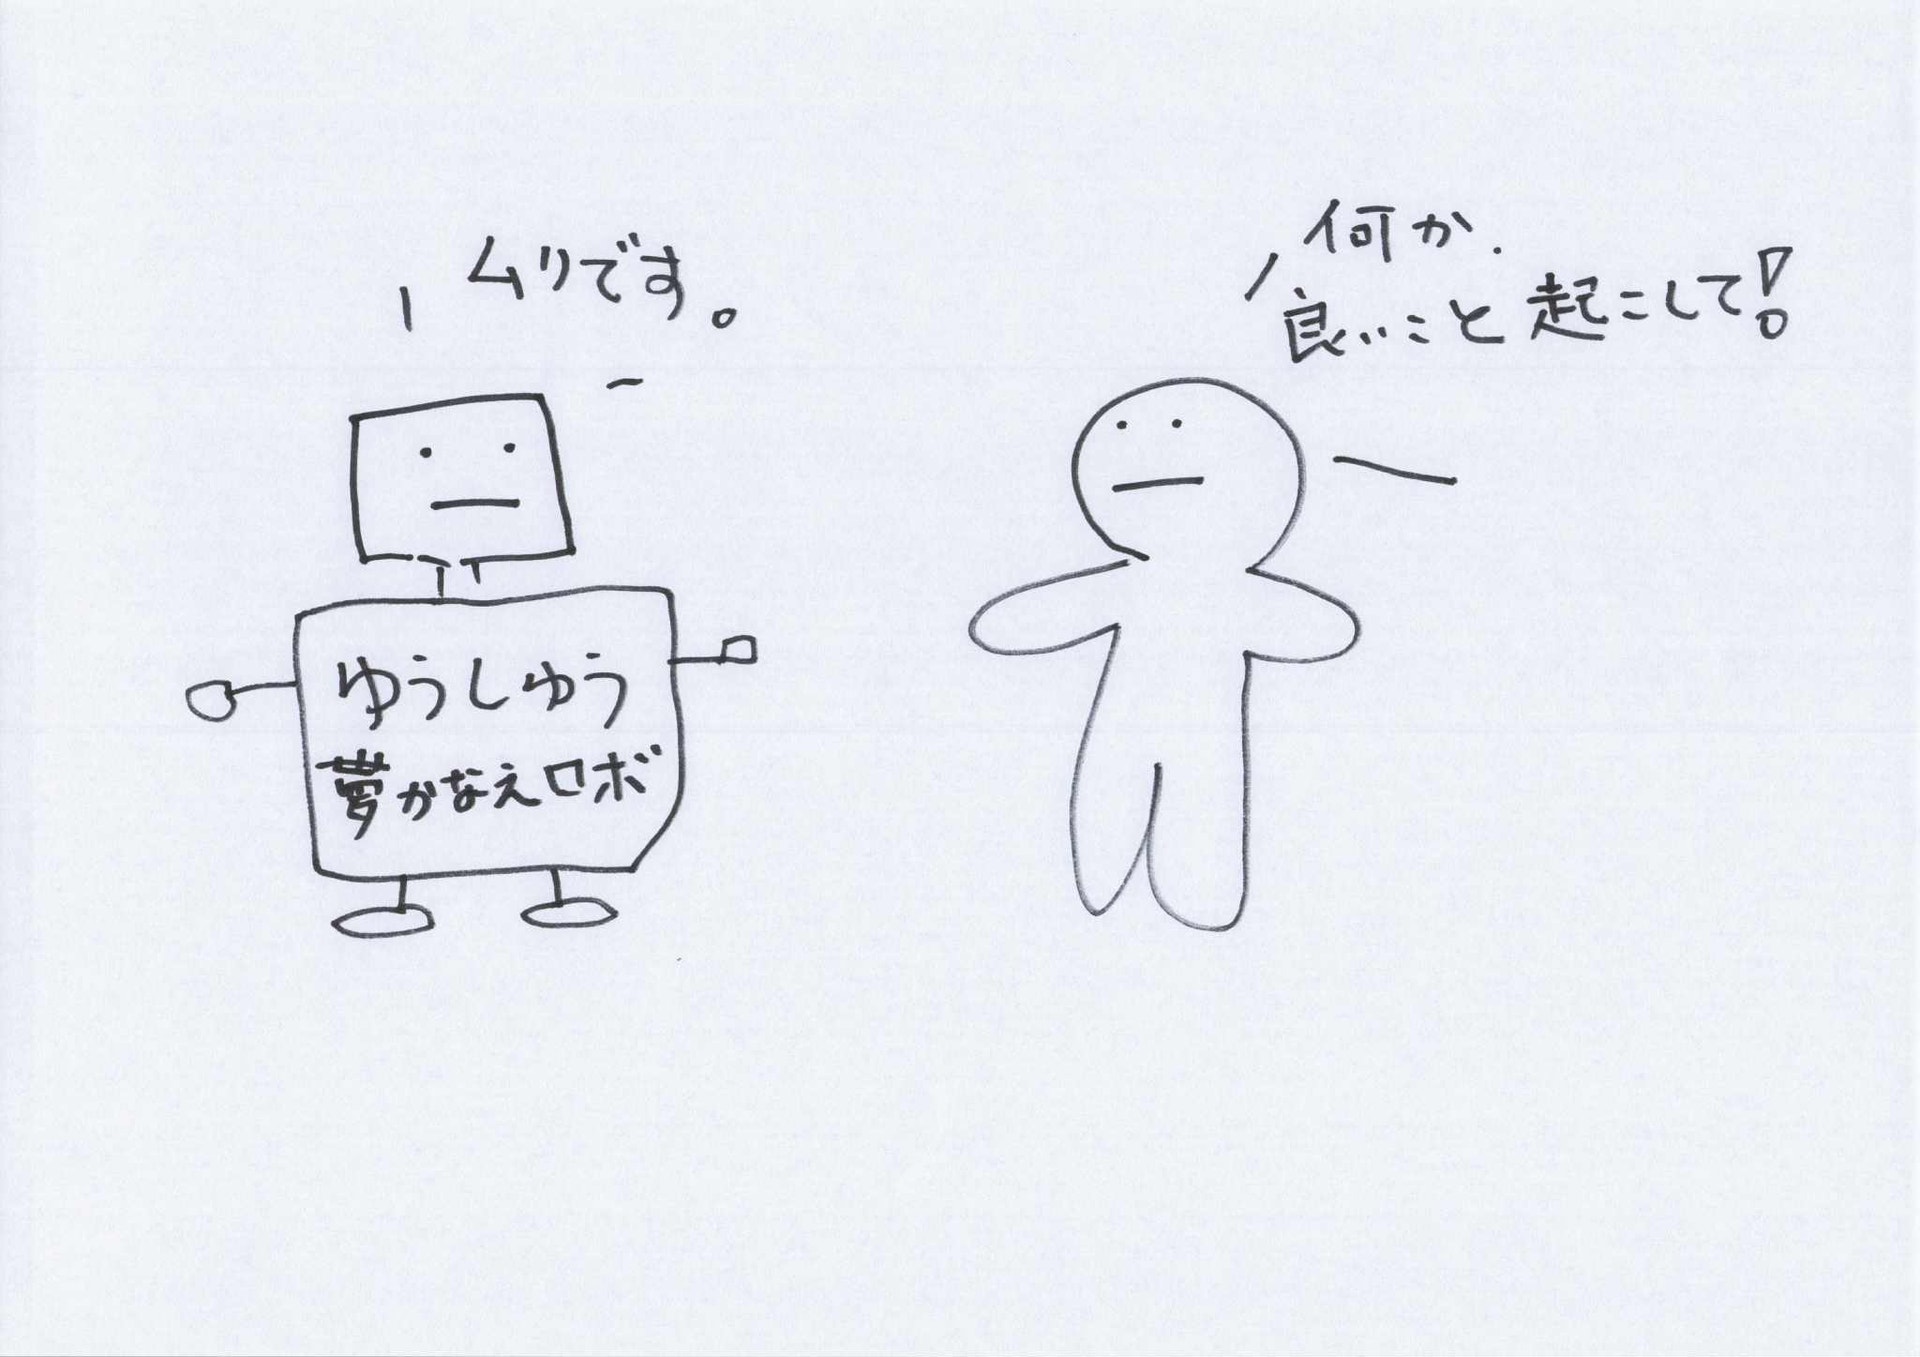 ムリです。
何か
良いこと起こして!
ゆうしゆう
夢かなえロボ